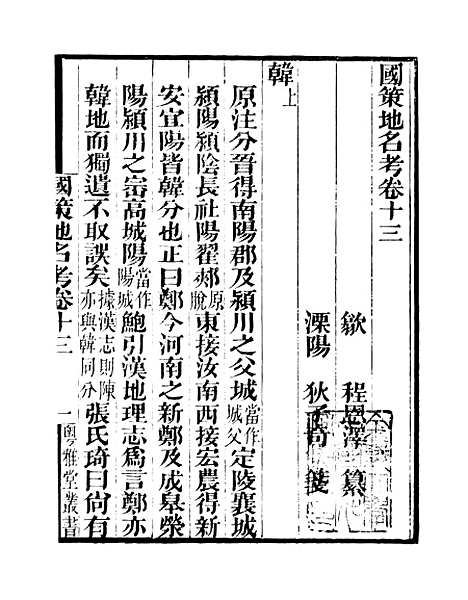 國策地名考卷十三
歙 程恩澤 纂
溧陽 狄子奇 箋
韓上
原注分晉得南陽郡及潁川之父城當作城父定陵襄城
潁陽潁陰長社陽翟郟原脫東接汝南西接宏農得新
安宜陽皆韓分也正曰鄭今河南之新鄭及成皋滎
陽潁川之崇高城陽當作陽城鮑引漢地理志為言鄭亦
韓地而獨遺不取誤矣據漢志則陳亦與韓同分張氏琦曰尙有
國策地名考卷十三
一
粵雅堂叢書